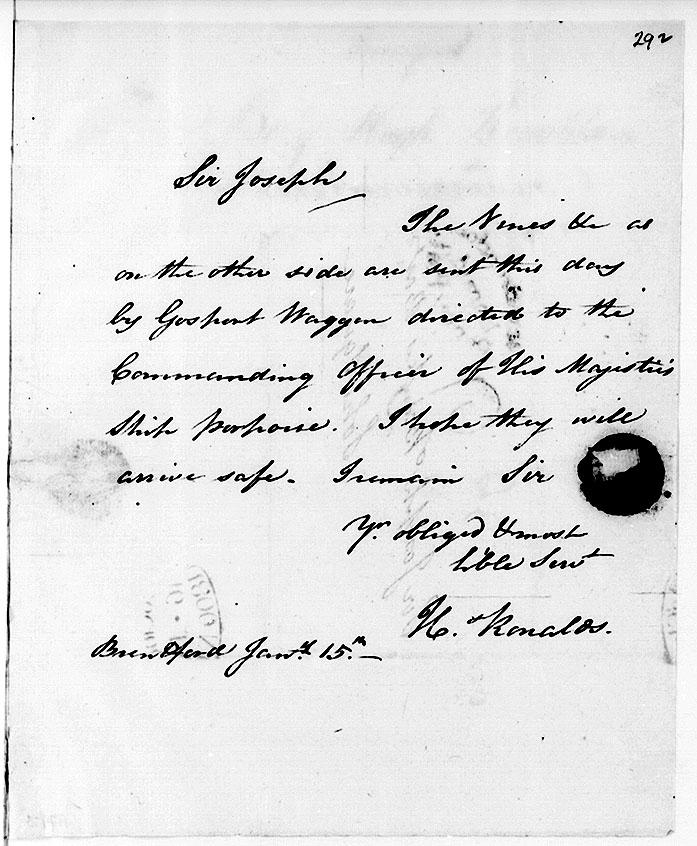 292
Sir Joseph
The Vines &c as
on the other side are sent this day
by Gosport Waggon directed to the
Commanding Officer of His Majesties
Ship porpoise. I hope they will
arrive safe. I remain Sir
Yr. obliged & most
hble Servt
H. Ronalds.
Brentford Jany. 15.th